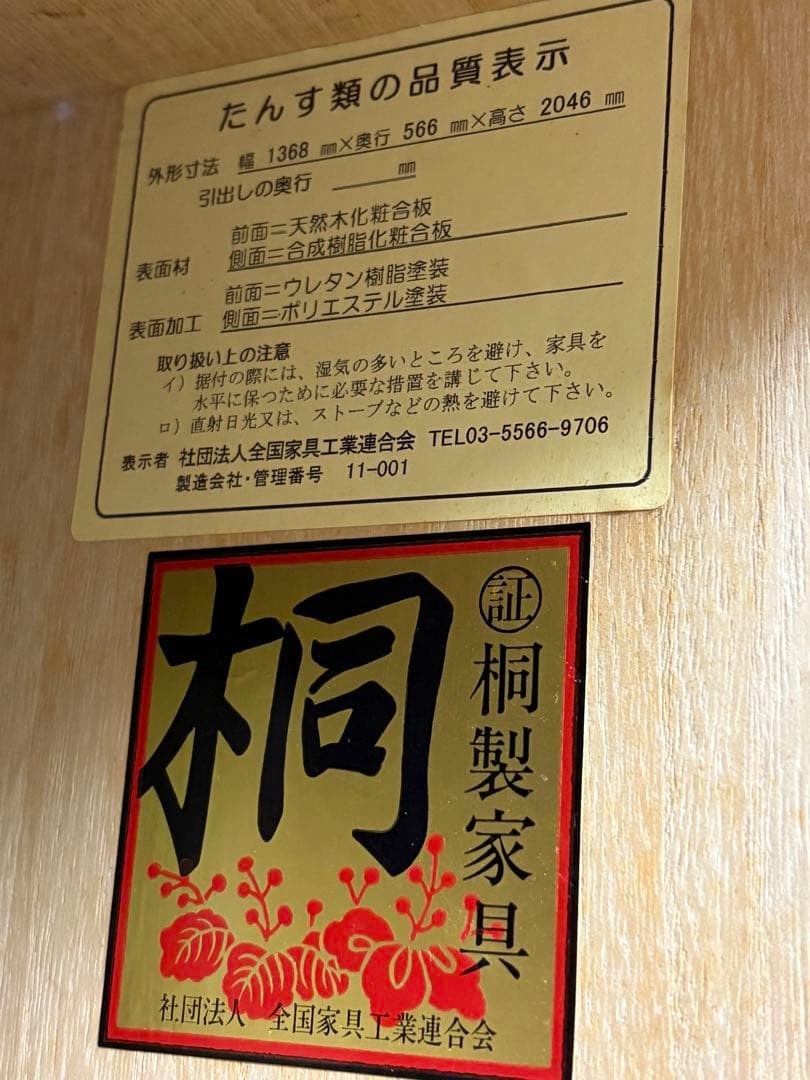 たんす類の品質表示
外形寸法 幅 1368 ㎜×奥行 566 ㎜×高さ 2046 ㎜
引出しの奥行 ㎜
表面材 前面＝天然木化粧合板
側面＝合成樹脂化粧合板
表面加工 前面＝ウレタン樹脂塗装
側面＝ポリエステル塗装
取り扱い上の注意
イ）据付の際には、湿気の多いところを避け、家具を
水平に保つために必要な措置を講じて下さい。
ロ）直射日光又は、ストーブなどの熱を避けて下さい。
表示者 社団法人全国家具工業連合会 TEL03-5566-9706
製造会社・管理番号 11-001
桐
㊣証 桐製家具
社団法人 全国家具工業連合会